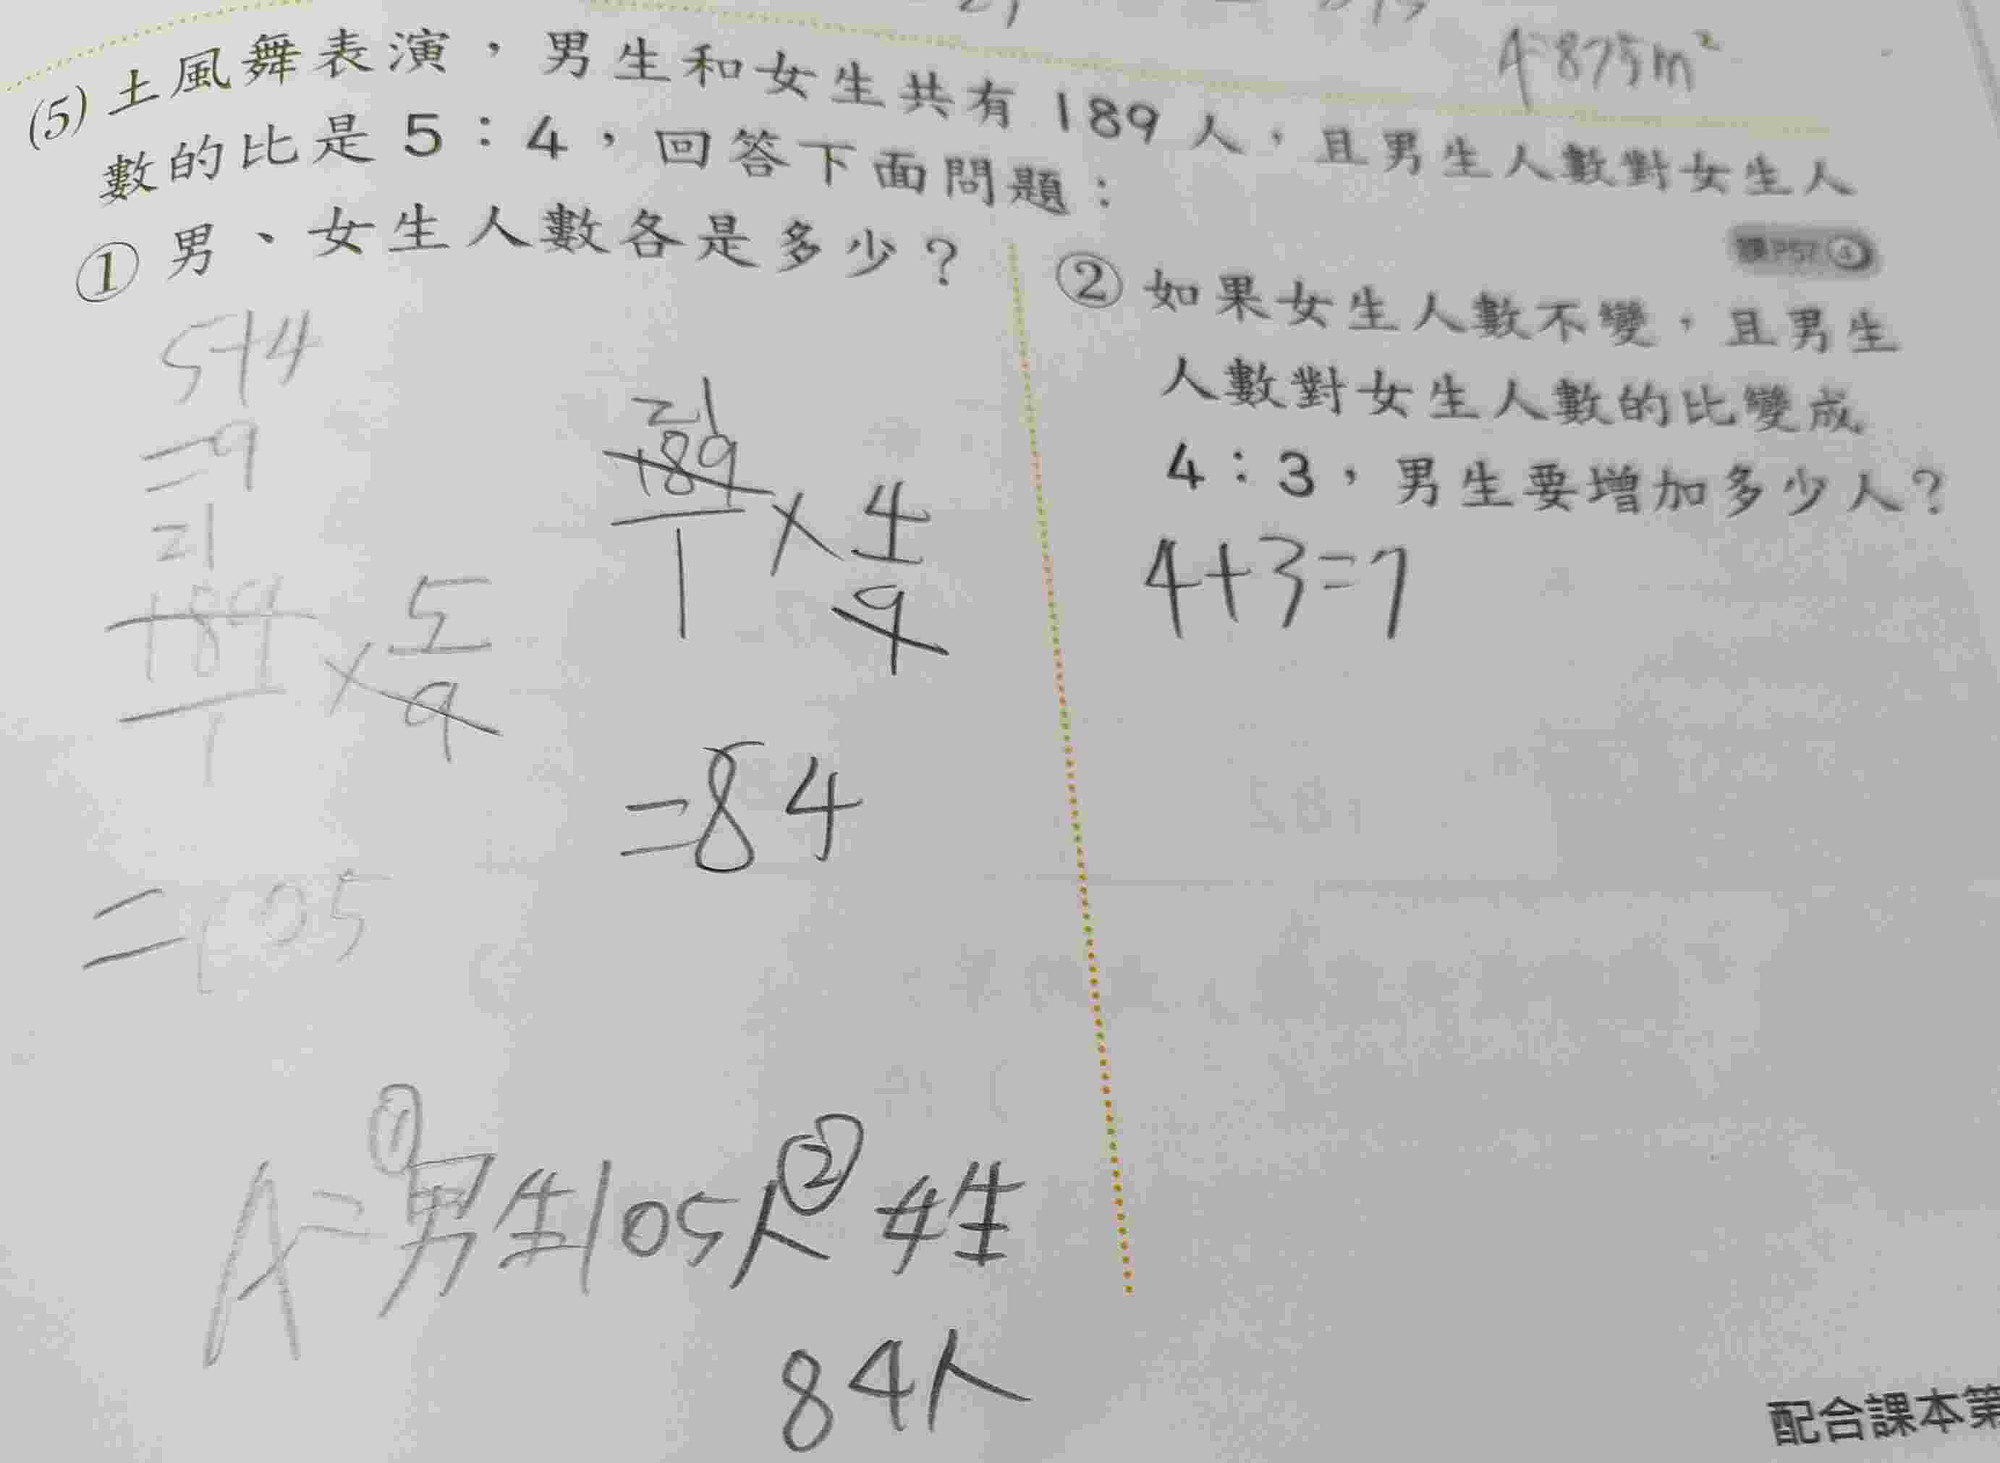 4.875m²
(5) 土風舞表演，男生和女生共有 189 人，且男生人數對女生人
數的比是 5：4，回答下面問題：
課P57④
① 男、女生人數各是多少？
5+4
=9
21
189/1 × 5/9
=105
21
189/1 × 4/9
=84
A=①男生105人②女生
84人
② 如果女生人數不變，且男生
人數對女生人數的比變成
4：3，男生要增加多少人？
4+3=7
配合課本第